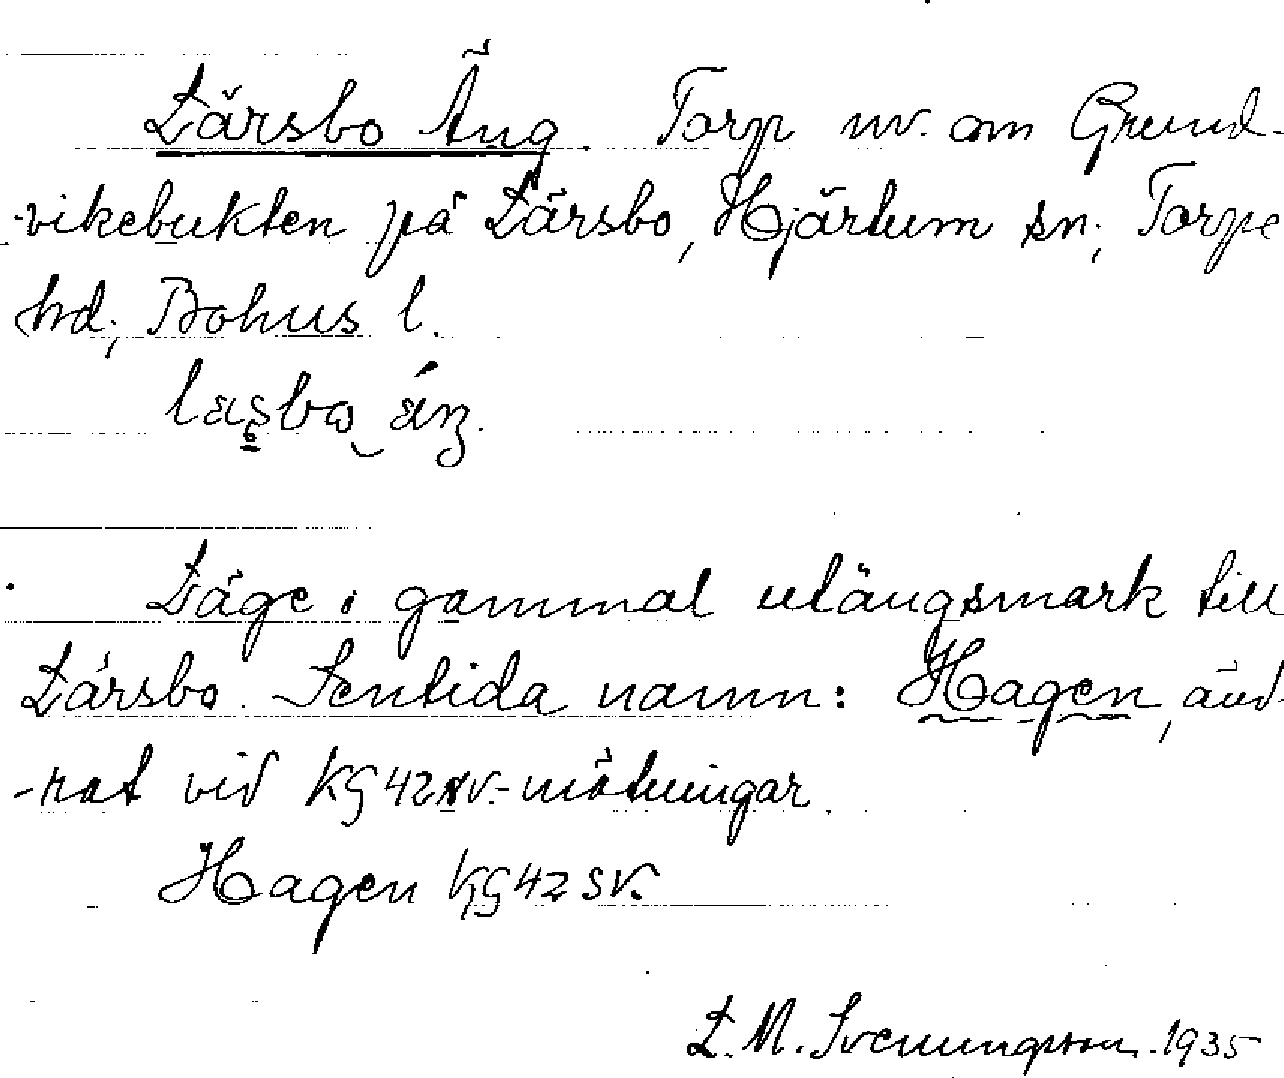 Lärsbo Äng. Torp nv. om Grund-
-vikebukten på Lärsbo, Hjärtum sn; Torpe
hd; Bohus l.
Läge i gammal utängsmark till
Lärsbo. Sentida namn: Hagen, änd-
-rat vid KG42SV.-mätningar.
Hagen KG42SV.
L. M. Svenungsson. 1935